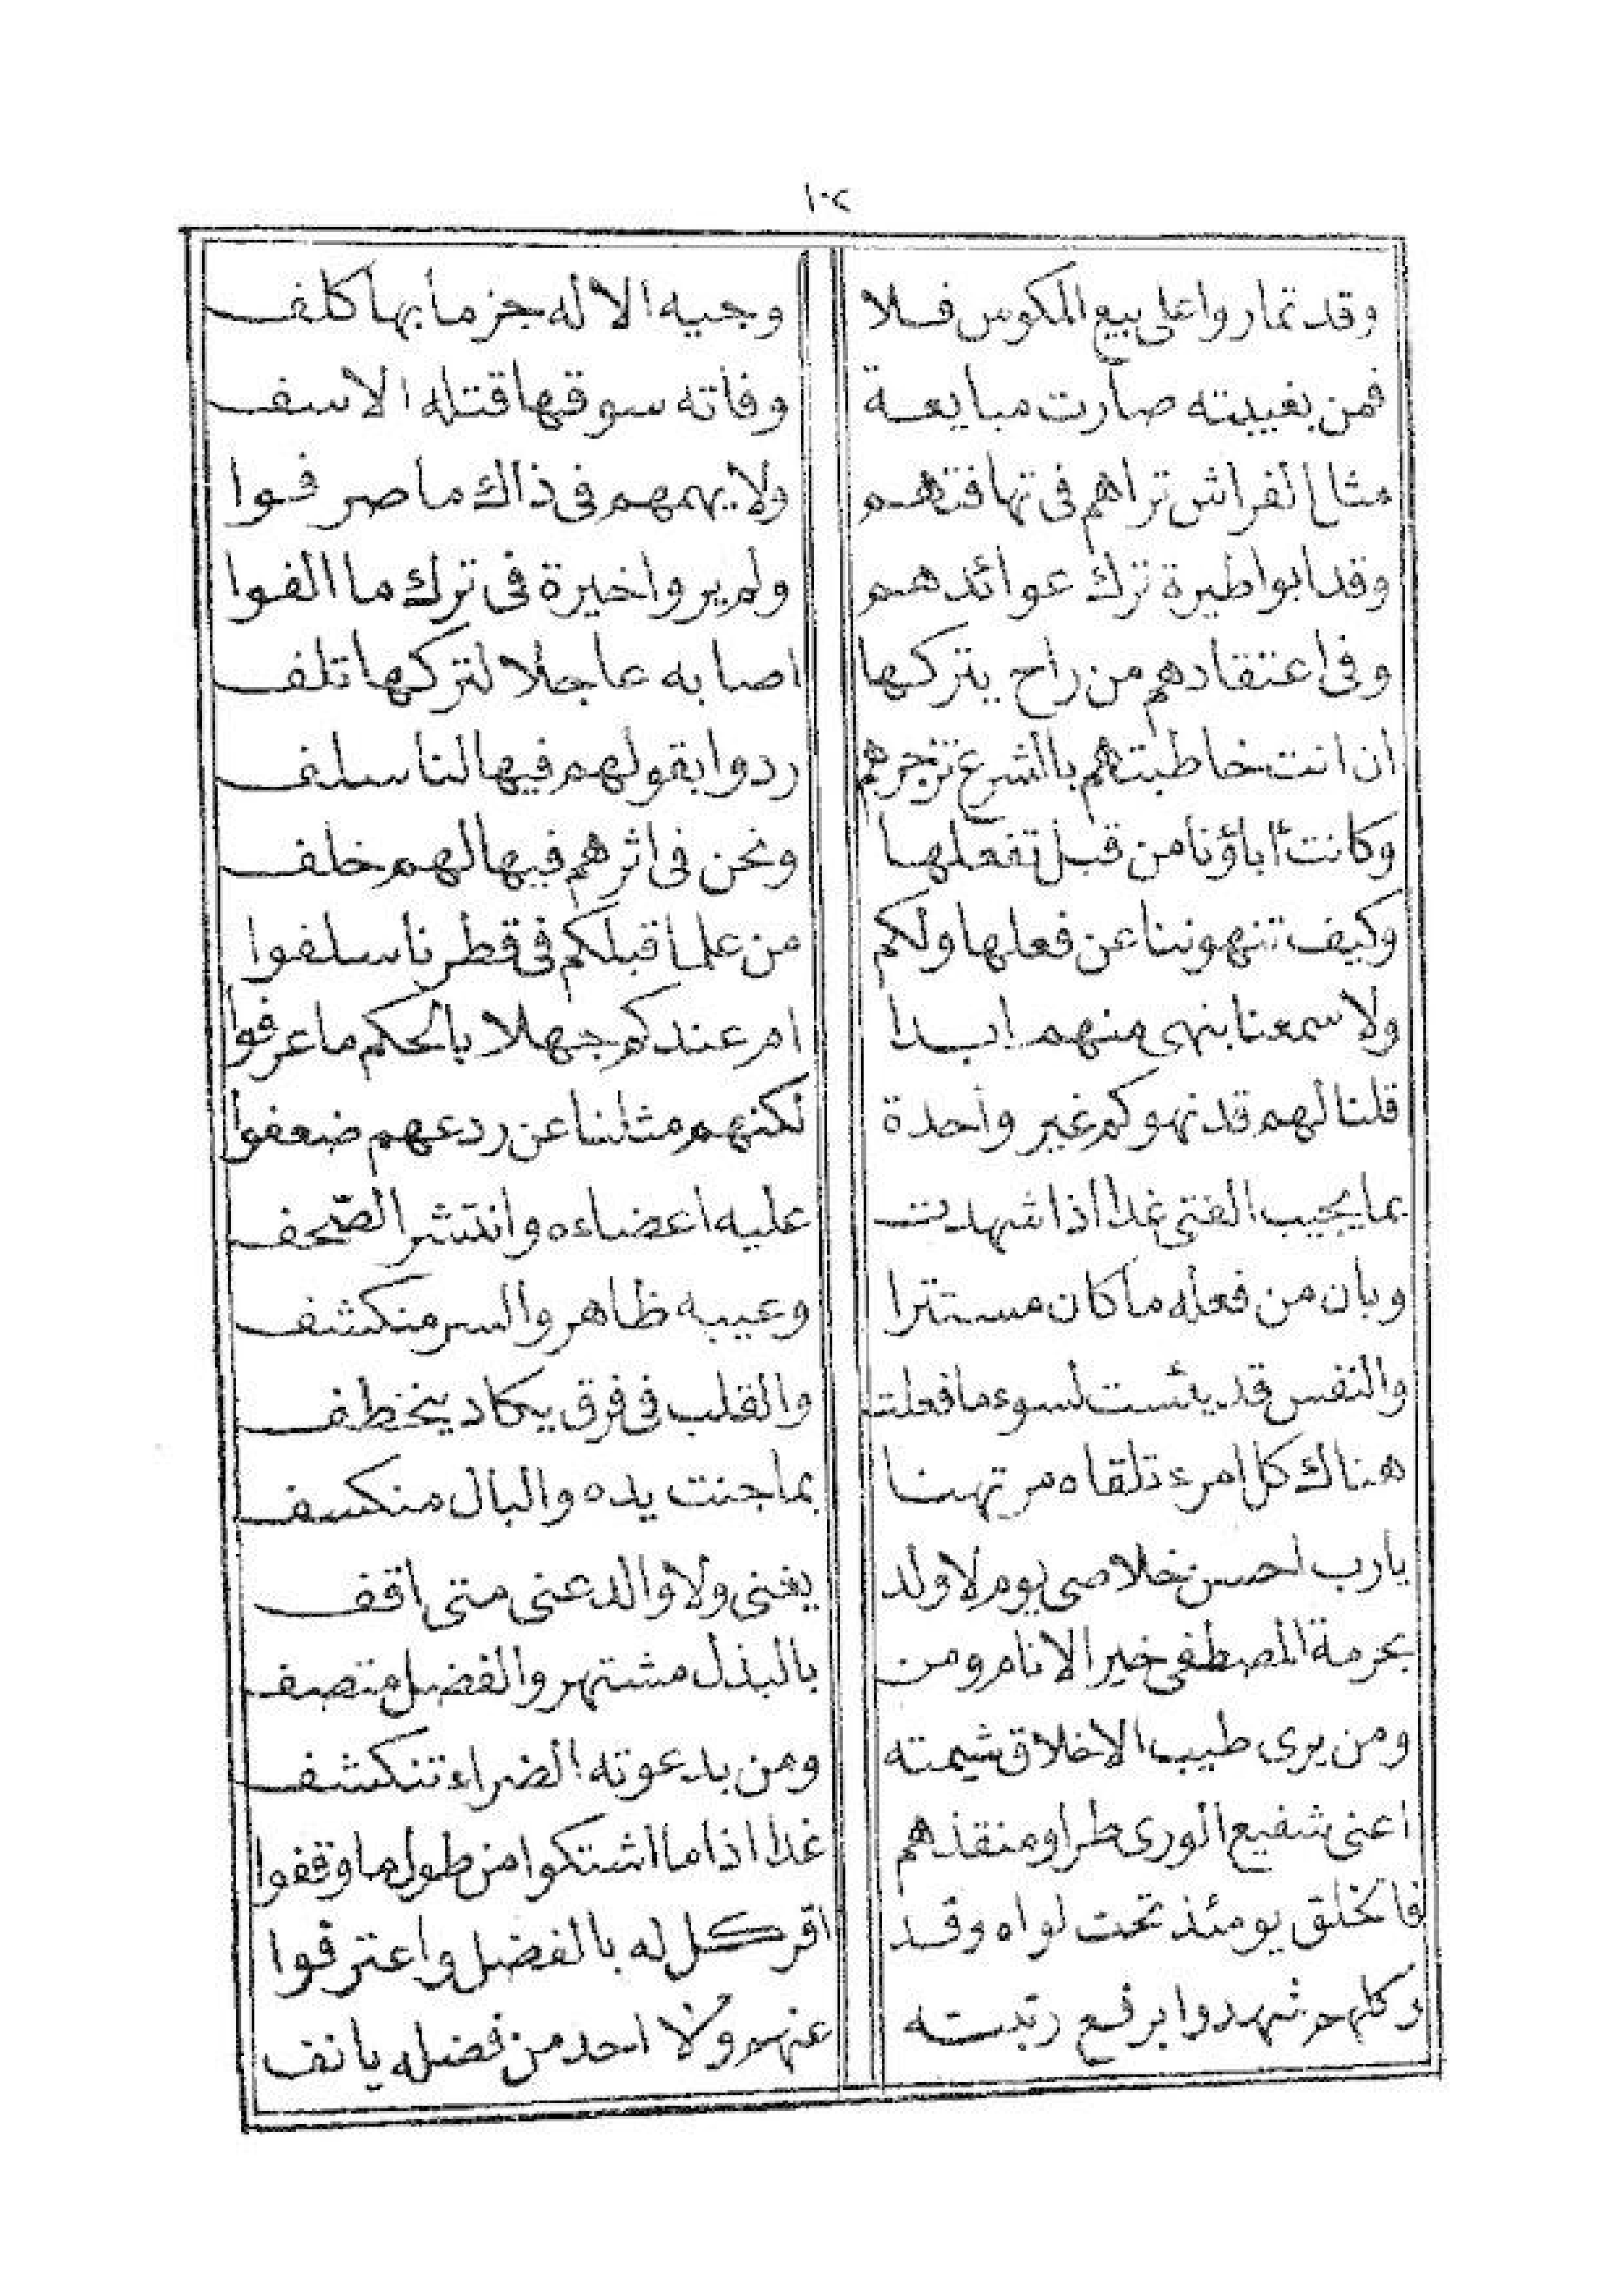 ١٠٢
وقد تماروا على بيع المكوس فلا وجيه الا له جزما بها كلف
فمن بغيبته صارت مبايعة وفاته سوقها قتله الاسف
مثل الفراش تراهم فى تهافتهم ولا يهمهم فى ذاك ما صرفوا
وقد ابوا طيرة ترك عوائدهم ولم يروا خيرة فى ترك ما الفوا
وفى اعتقادهم من راح يتركها اصابه عاجلا لتركها تلف
ان انت خاطبتهم باالشرع تزجرهم ردوا بقولهم فيها لنا سلف
وكانت أباؤنا من قبل تفعلها ونحن فى اثرهم فيها لهم خلف
وكيف تنهوننا عن فعلها ولكم من علما قبلكم فى قطرنا سلفوا
ولا سمعنا بنهى منهم ابدا ام عندكم جهلا بالحكم ما عرفوا
قلنا لهم قد نهوكم غير واحدة لكنهم مثلنا عن ردعهم ضعفوا
بما يجيب الفتى غدا اذا شهدت عليه اعضاءه وانتشر الصّحف
وبان من فعله ما كان مستترا وعيبه ظاهر والسر منكشف
والنفس قد يئست لسوء ما فعلت والقلب فى فرق يكاد ينخطف
هناك كل امرء تلقاه مرتهنا بما جنت يده والبال منكسف
يارب احسن خلاصى يوم لا ولد يغنى ولا والد عنى متى اقف
بحرمة المصطفى خير الانام ومن بالبذل مشتهر والفضل متصف
ومن يرى طيب الاخلاق شيمته ومن بدعوته الضراء تنكشف
اعنى شفيع الورى طرا ومنقذهم غدا اذا ما اشتكوا من طول ما وقفوا
فالخلق يومئذ تحت لواه وقد اقر كل له بالفضل واعترفوا
وكلهم شهدوا برفع رتبته عنهم ولا احد من فضله يانف